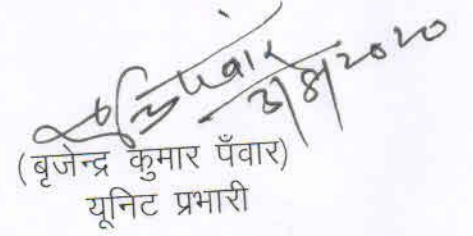 3/8/2020
(बृजेन्द्र कुमार पँवार)
यूनिट प्रभारी